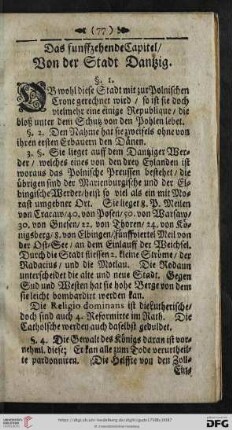 (77)
Das funffzehende Capitel/
Von der Stadt Dantzig.
§. 1.
OB wohl diese Stadt mit zur Polnischen
Crone gerechnet wird / so ist sie doch
vielmehr eine einige Republique / die
bloß unter dem Schutz von den Pohlen lebet.
§. 2. Den Nahme hat sie zweifels ohne von
ihren ersten Erbauern den Dänen.
3. §. Sie lieget auff dem Dantziger Wer-
der / welches eines von den drey Eylanden ist
woraus das Polnische Preussen bestehet / die
übrigen sind der Marienburgische und der El-
bingische Werder / heist so viel als ein mit Mo-
rast umgebner Ort. Sie lieget 8. P. Meilen
von Cracaw/40. von Posen/50. von Warsaw/
30. von Gnesen/22. von Thoren/24. von Kö-
nigsberg/8. von Elbingen/fünffviertel Meil von
der Ost/See / an dem Einlauff der Weichsel.
Durch die Stadt fliessen 2. kleine Ströme / der
Radacius / und die Motlau. Die Rodaun
unterscheidet die alte und neue Stadt. Gegen
Sud und Westen hat sie hohe Berge von dem
sie leicht bombardirt werden kan.
Die Religio dominans ist die Lutherische/
doch sind auch 4. Reformirte im Rath. Die
Catholische werden auch daselbst geduldet.
§. 4. Die Gewalt des Königs daran ist vor-
nehml. diese; Er kan alle zum Tode verurtheil-
te pardonniren. Die Helffte von den Zoll-
Ein-
DFG